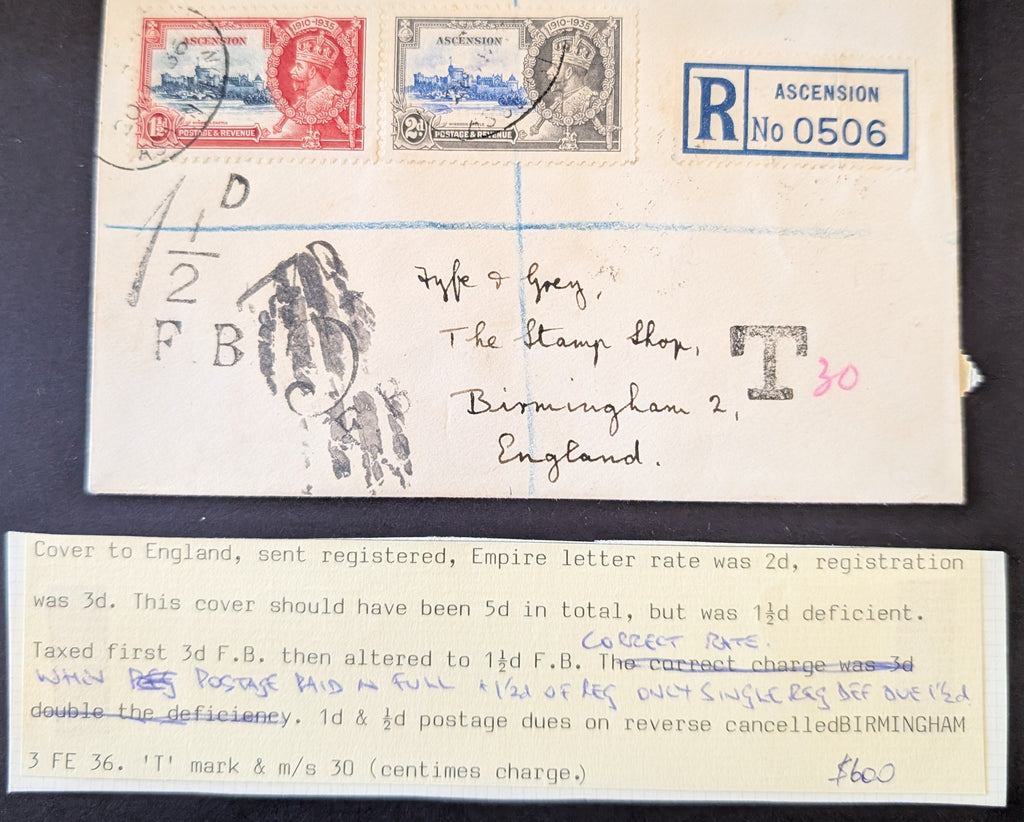 1910-1935 1910-1935
ASCENSION ASCENSION
1½d POSTAGE & REVENUE 2d POSTAGE & REVENUE
R ASCENSION
No 0506
1/2 D
F.B
Fyfe & Grey,
The Stamp Shop,
Birmingham 2,
England.
T 30
Cover to England, sent registered, Empire letter rate was 2d, registration
was 3d. This cover should have been 5d in total, but was 1½d deficient.
CORRECT RATE.
Taxed first 3d F.B. then altered to 1½d F.B. The correct charge was 3d
WHEN REG POSTAGE PAID IN FULL + 1/2d OF REG ONLY SINGLE REG DEF DUE 1½d.
double the deficiency. 1d & ½d postage dues on reverse cancelledBIRMINGHAM
3 FE 36. 'T' mark & m/s 30 (centimes charge.)
$600